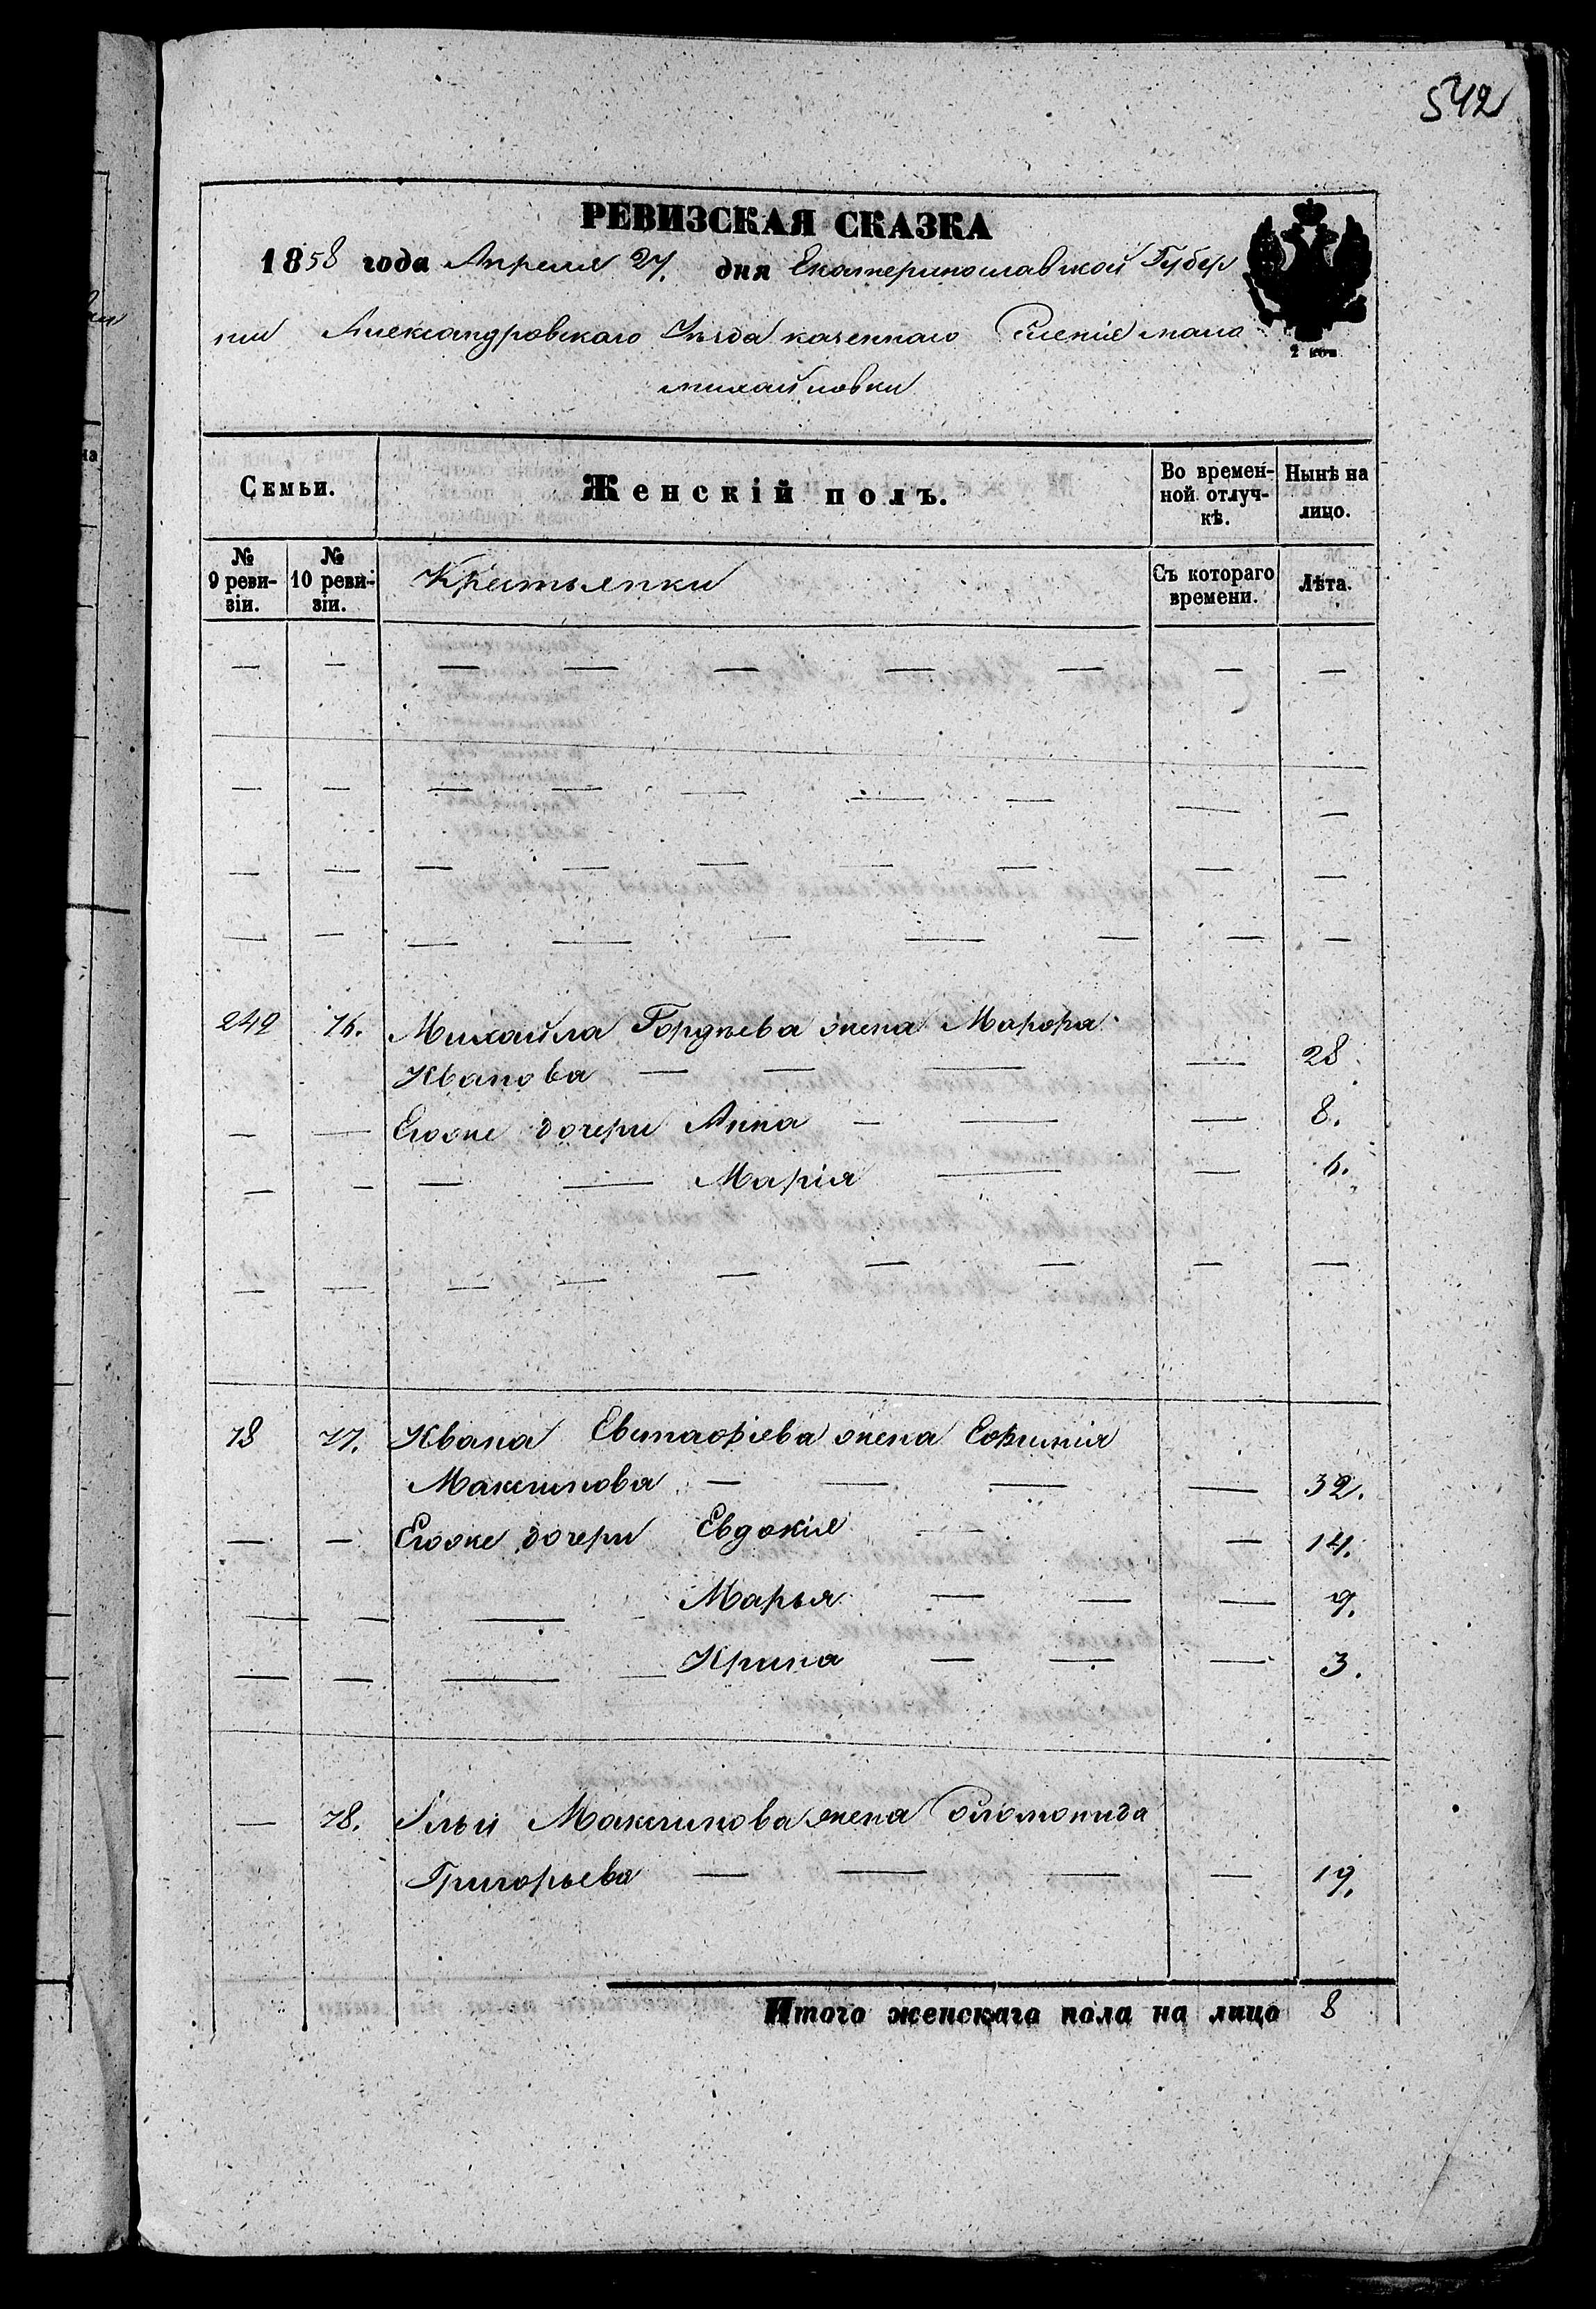 542
РЕВИЗСКАЯ СКАЗКА
1858 года Апреля 27. дня Екатеринославской Губер
нии Александровскаго Уѣзда казеннаго Селенія мало
михайловки
2 коп.
Семьи. Женскій полъ. Во времен- Нынѣ на
ной отлуч- лицо.
кѣ.
№ № Крестьянки Съ котораго Лѣта.
9 реви- 10 реви- времени.
зіи. зіи.
— — — — — — — — —
— — — — — — — — —
— — — — — — — — —
— — — — — — — — —
249 76. Михайла Гордѣева жена Марфа
Иванова — — — — 28
— — Егоже дочери Анна — — — 8.
— — — — Марія — — 6.
— — — — — — — — —
78 77. Ивана Евстафіева жена Евфимія
Максимова — — — — 32.
— — Егоже дочери Евдокія — — 14.
— — — Марья — — — 9.
— — — — Ирина — — — 3.
— 78. Ильи Максимова жена Соломонида
Григорьева — — — — 19.
Итого женскаго пола на лицо 8